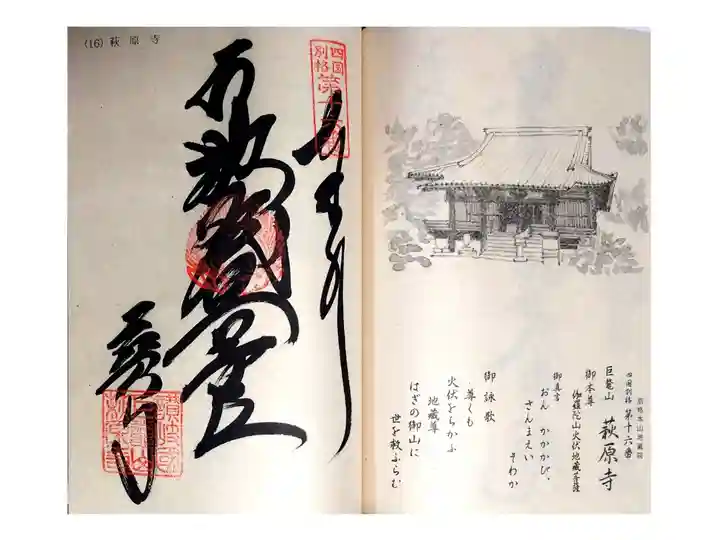 (16) 萩原寺
四国
別格
第十六番
奉拝
別格本山地蔵院
四国別格 第十六番
巨鼇山 萩原寺
御本尊
伽羅陀山火伏地蔵菩薩
御真言
おん かかかび、
さんまえい
そわか
御詠歌
尊くも
火伏をちかふ
地蔵尊
はぎの御山に
世を救ふらむ